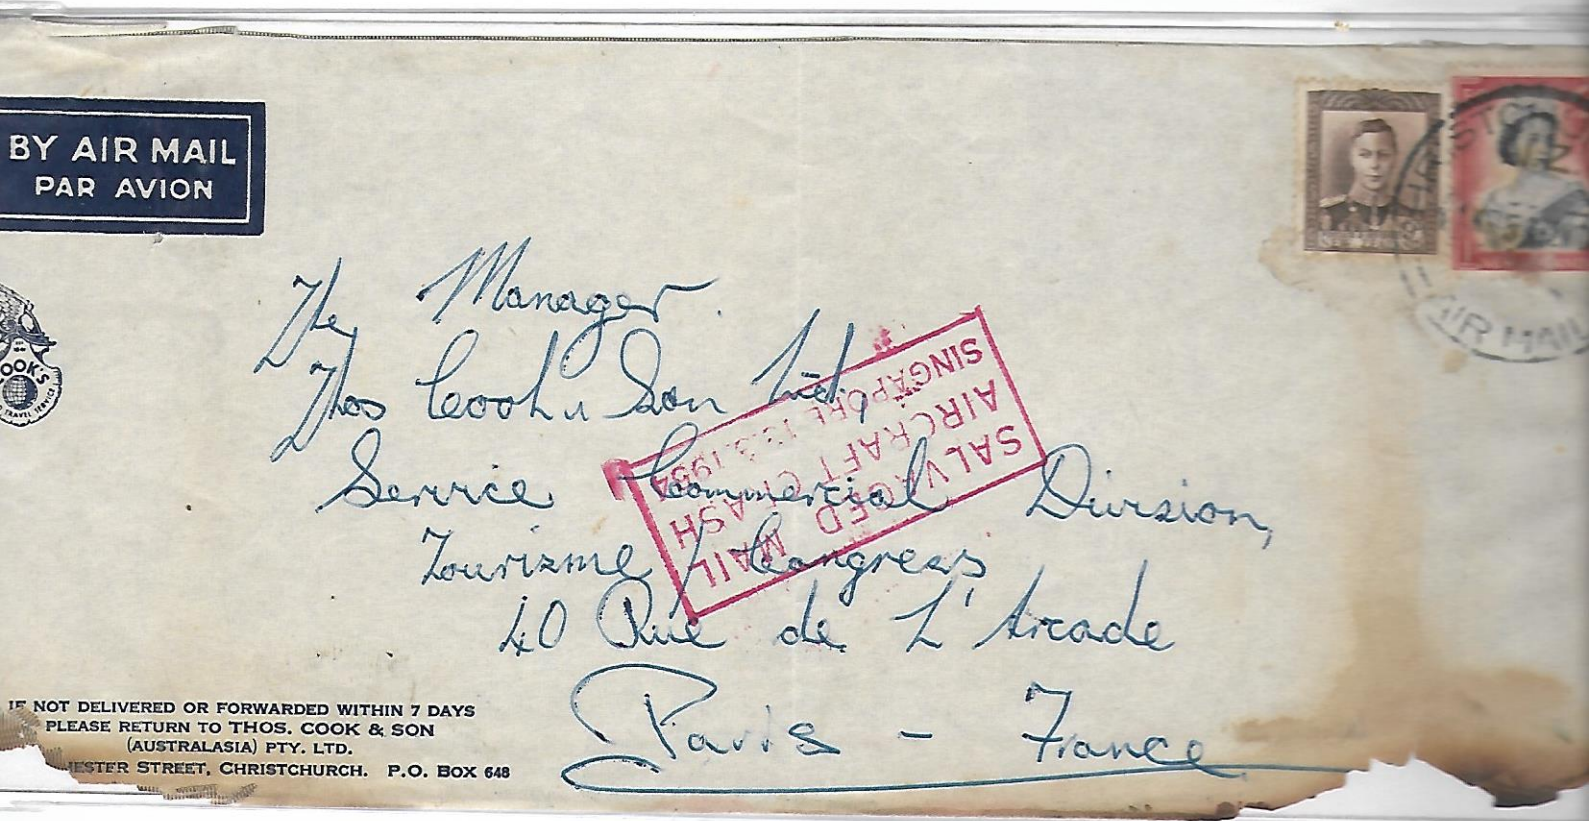 BY AIR MAIL
PAR AVION
OOK'S
TRAVEL SERVICE
AIR MAIL
The Manager
Thos Cook & Son Ltd,
Service Commercial Division,
Tourisme / Congress
40 Rue de L'Arcade
Paris - France
SALVAGED MAIL
AIRCRAFT CRASH
SINGAPORE 13.3.1954
IF NOT DELIVERED OR FORWARDED WITHIN 7 DAYS
PLEASE RETURN TO THOS. COOK & SON
(AUSTRALASIA) PTY. LTD.
HESTER STREET, CHRISTCHURCH. P.O. BOX 648